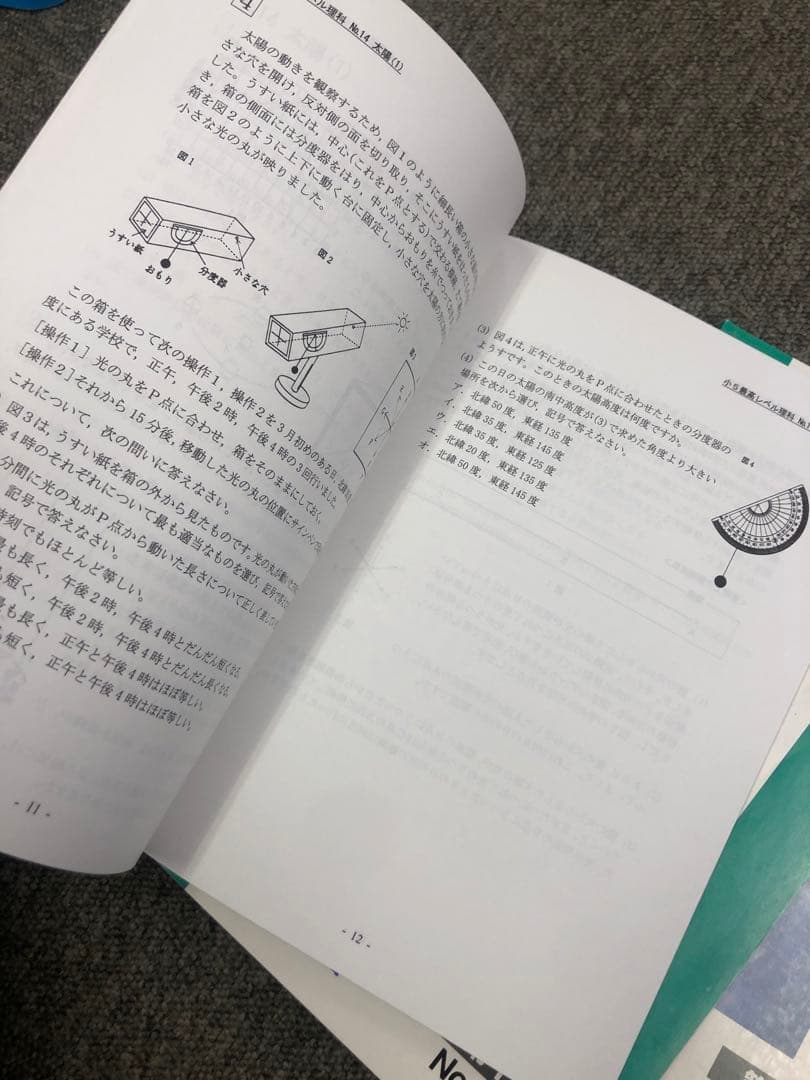 4
ル理科 No.14 太陽(1)
太陽の動きを観察するため，図1のように細長い箱の小さな
さな穴を開け，反対側の面を切り取り，そこにうすい紙を
した。うすい紙には，中心(これをP点とする)で交わる
き，箱の側面には分度器をはり，中心からおもりを糸でつ
箱を図2のように上下に動く台に固定し，小さな穴を太陽の
小さな光の丸が映りました。
図1
うすい紙
おもり
分度器
小さな穴
図2
この箱を使って次の操作1，操作2を3月初めのある日，北緯
度にある学校で，正午，午後2時，午後4時の3回行いました。
[操作1] 光の丸をP点に合わせ，箱をそのままにしておく。
[操作2] それから15分後，移動した光の丸の位置にサインペンで
これについて，次の問いに答えなさい。
図3は，うすい紙を箱の外から見たものです。光の丸が動いた
後4時のそれぞれについて最も適当なものを選び，記号で答え
分間に光の丸がP点から動いた長さについて正しく表してい
記号で答えなさい。
時刻でもほとんど等しい。
最も長く，午後2時，午後4時とだんだん短くなる。
も短く，午後2時，午後4時とだんだん長くなる。
も長く，正午と午後4時はほぼ等しい。
も短く，正午と午後4時はほぼ等しい。
- 11 -
小5最高レベル理科 No.1
(3) 図4は，正午に光の丸をP点に合わせたときの分度器の
ようすです。このときの太陽高度は何度ですか。
(4) この日の太陽の南中高度が(3)で求めた角度より大きい
場所を次から選び，記号で答えなさい。
ア．北緯50度，東経135度
イ．北緯35度，東経145度
ウ．北緯35度，東経125度
エ．北緯20度，東経135度
オ．北緯50度，東経145度
図4
- 12 -
No